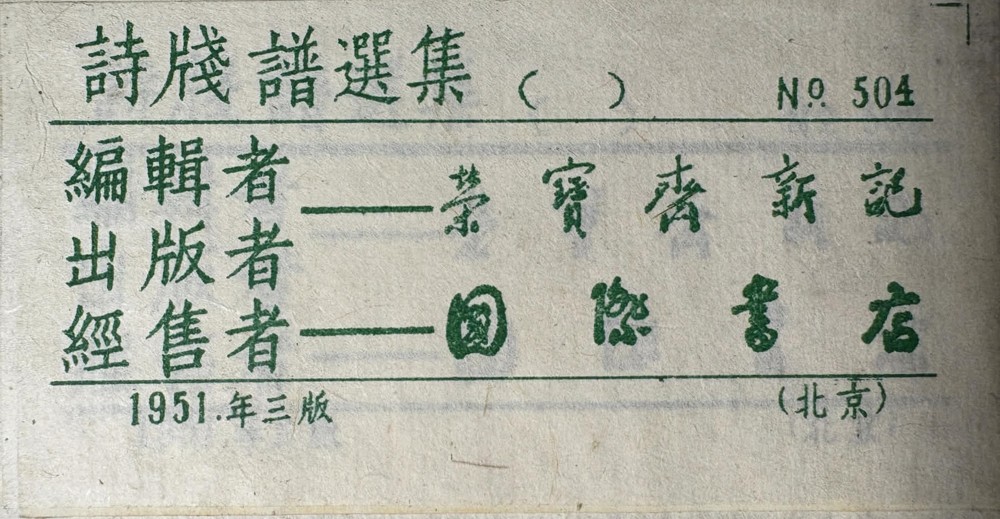 詩牋譜選集 (  ) No. 504
編輯者
出版者——榮寶齋新記
經售者——國際書店
1951.年三版 (北京)